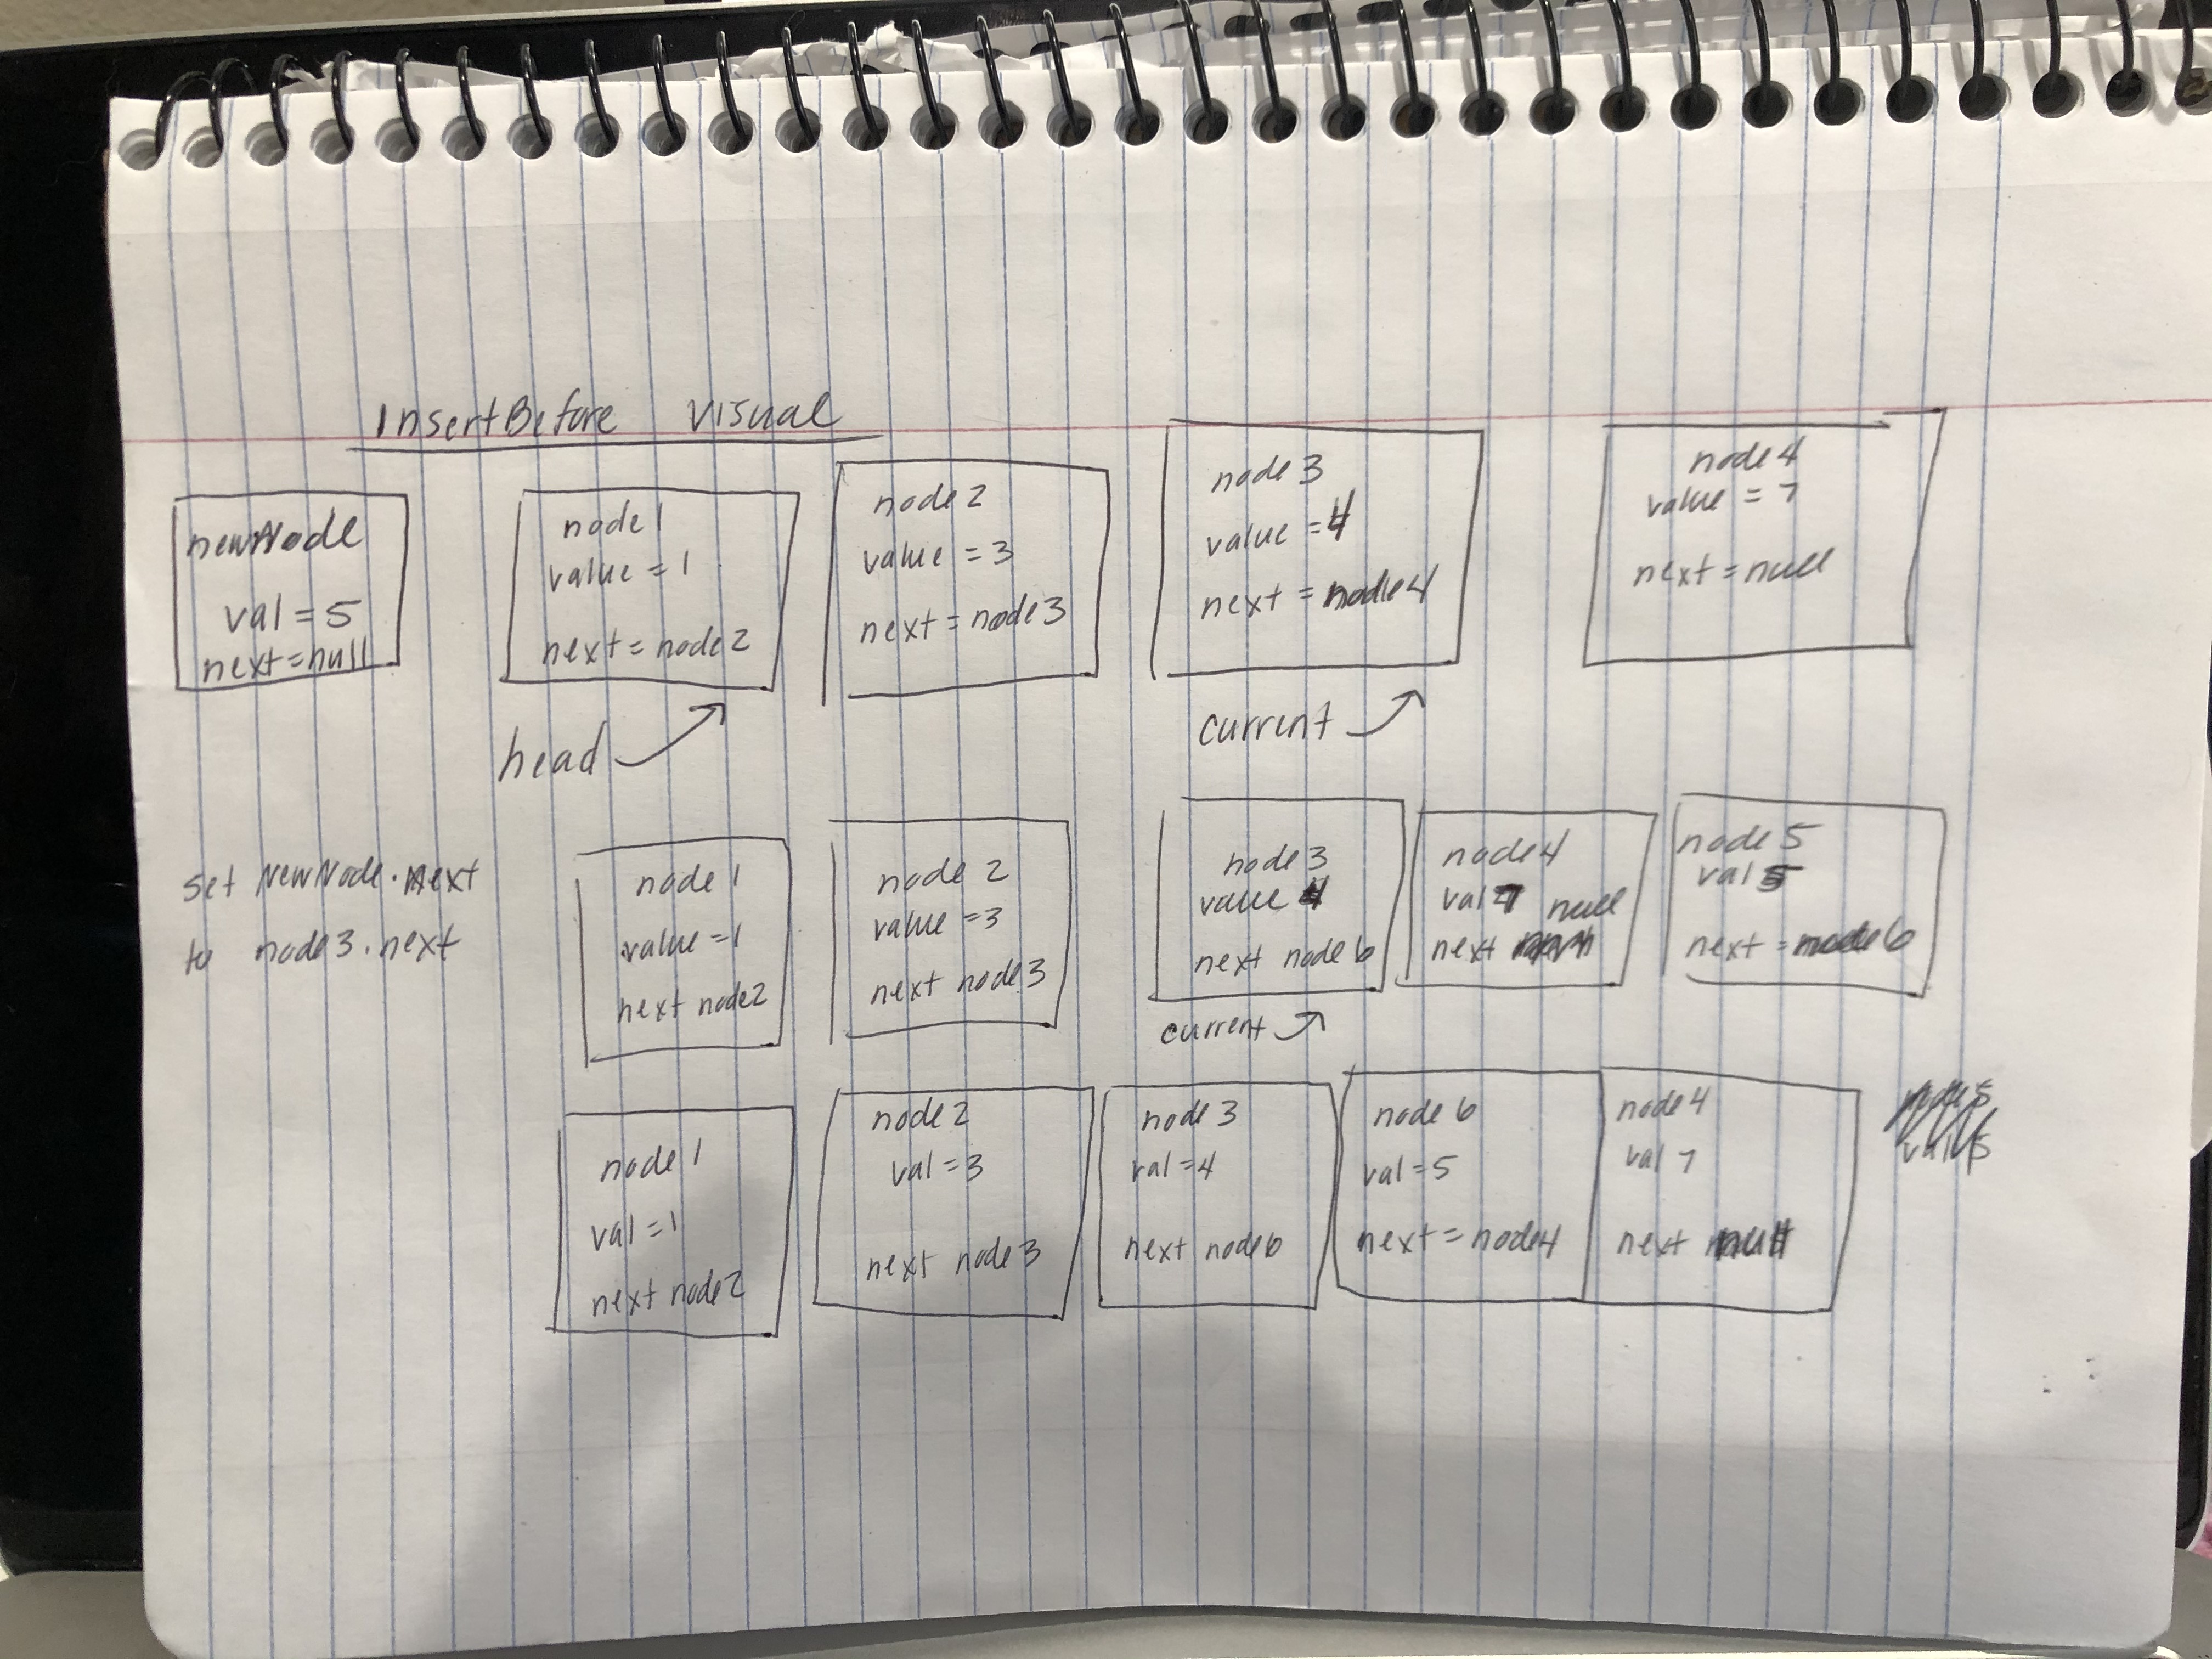 InsertBefore Visual
newNode
val = 5
next = null
node 1
value = 1
next = node 2
head
node 2
value = 3
next = node 3
node 3
value = 4
next = node 4
current
node 4
value = 7
next = null
set NewNode.next
to node3.next
node 1
value = 1
next node2
node 2
value = 3
next node 3
node 3
value 4
next node 6
current
node 4
val 7
null
next
node 5
val 5
next = node 6
node 1
val = 1
next node2
node 2
val = 3
next node 3
node 3
val = 4
next node 6
node 6
val = 5
next = node4
node 4
val 7
next null